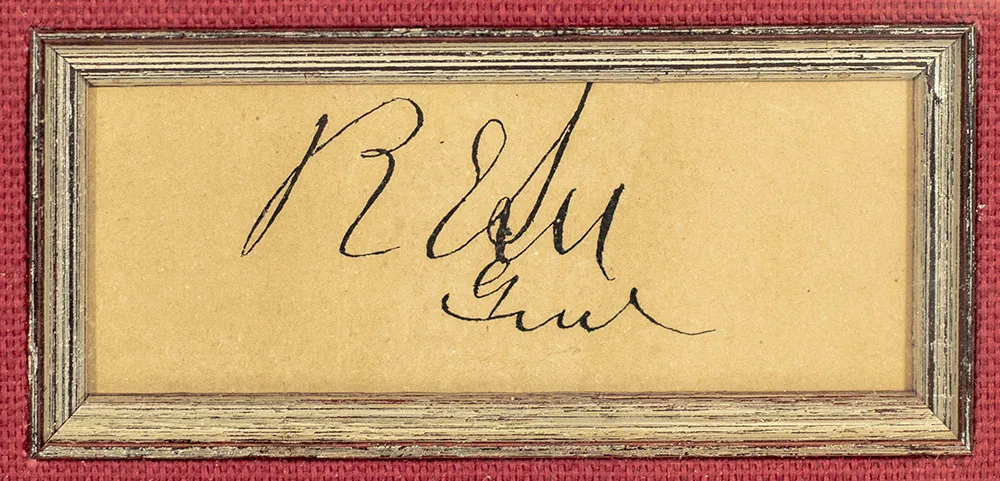 R E Lee
Genl